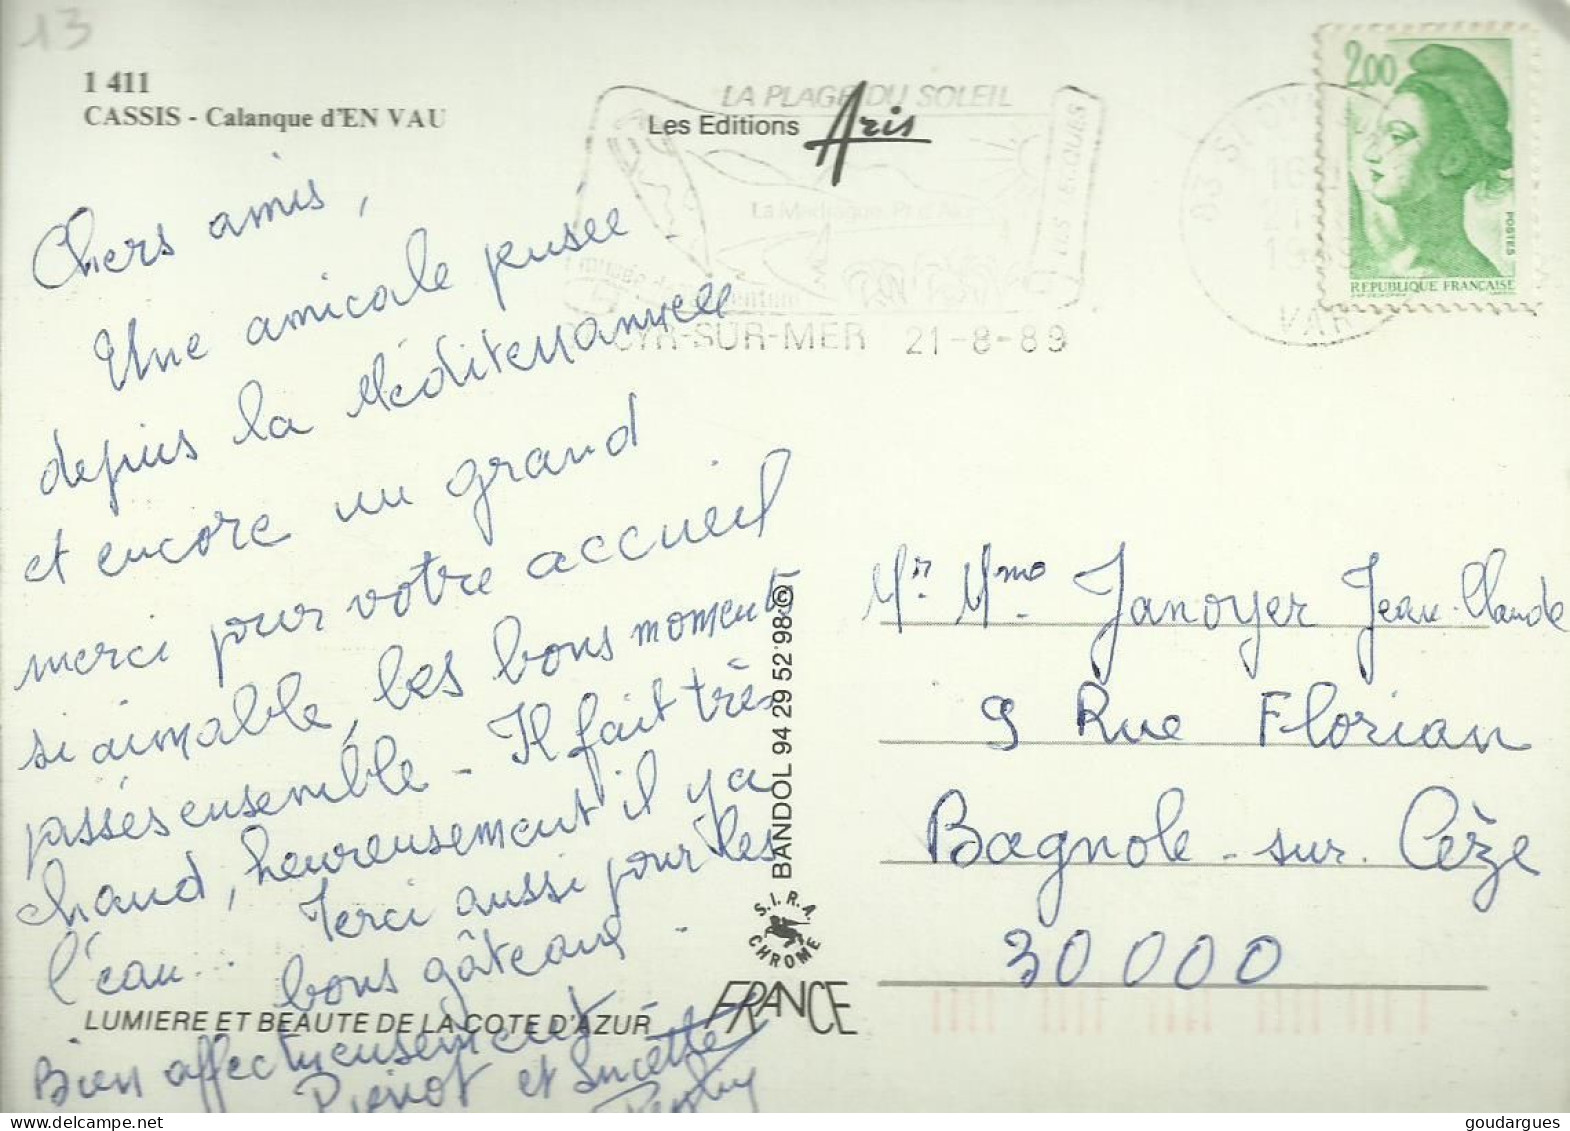 13
1 411
CASSIS - Calanque d'EN VAU
LA PLAGE DU SOLEIL
Les Editions Aris
LES LECQUES
La Madrague Port d'Alon
CYR-SUR-MER 21-8-89
83 ST CYR
VAR
2.00
POSTES
REPUBLIQUE FRANÇAISE
Chers amis,
Une amicale pensée
depuis la Méditerrannée
et encore un grand
merci pour votre accueil
si aimable, les bons moments
passés ensemble - Il fait très
chaud, heureusement il y a
l'eau... Merci aussi pour les
bons gâteaux.
Bien affectueusement
Pierrot et Lucette
BANDOL 94 29 52 98 ©
S.I.R.A.
CHROME
FRANCE
LUMIERE ET BEAUTE DE LA COTE D'AZUR
Mr. Mme. Janoyer Jean-Claude
9 Rue Florian
Bagnole-sur-Cèze
30000
goudargues@delcampe.net